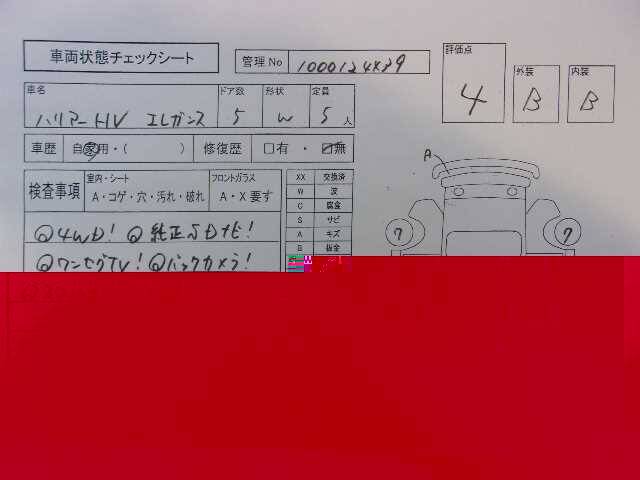 車両状態チェックシート
管理No 1000124839
評価点 4
外装 B
内装 B
車名 ハリアーHV エレガンス
ドア数 5
形状 W
定員 5 人
車歴 自家用・( )
修復歴 □有 ・ ☑無
検査事項
室内・シート
A・コゲ・穴・汚れ・破れ
フロントガラス
A・X 要す
◎4WD! ◎純正SDナビ!
◎ワンセグTV! ◎バックカメラ!
XX 交換済
W 波
C 腐食
S サビ
A キズ
B 板金
A
7
7